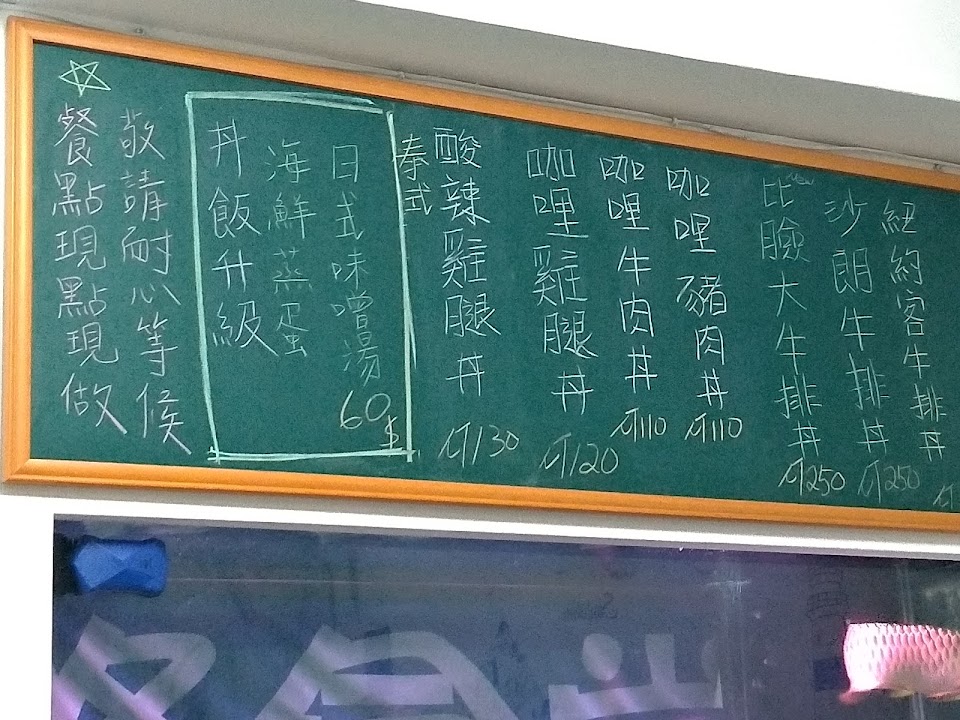 紐約客牛排丼
沙朗牛排丼 250
New
比臉大牛排丼 250
咖哩豬肉丼 110
咖哩牛肉丼 110
咖哩雞腿丼 120
泰式
酸辣雞腿丼 130
日式味噌湯
海鮮蒸蛋
丼飯升級
60元
敬請耐心等候
☆餐點現點現做